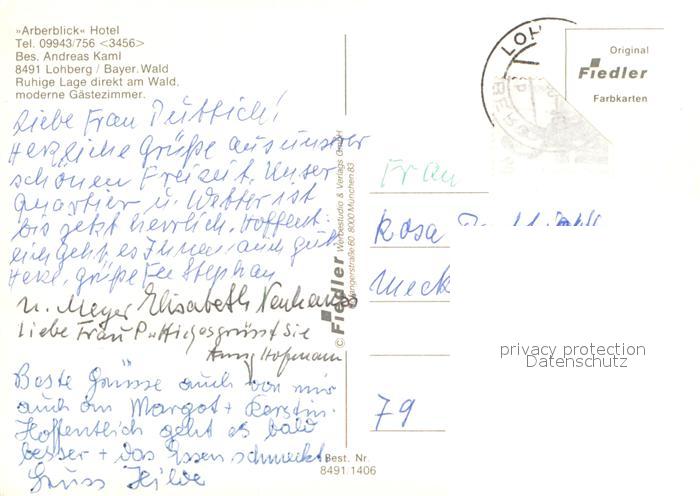 »Arberblick« Hotel
Tel. 09943/756 <3456>
Bes. Andreas Kaml
8491 Lohberg / Bayer. Wald
Ruhige Lage direkt am Wald,
moderne Gästezimmer.
Liebe Frau Puttich!
Herzliche Grüße aus unserer
schönen Freizeit. Unser
Quartier u. Wetter ist
bis jetzt herrlich. Hoffent-
lich geht es Ihnen auch gut.
Herz. grüße Stephan
u. Meyer Elisabeth Neuhaus
Liebe Frau es grüsst Sie
Anny Hofmann
Beste Grüsse auch von mir
auch an Margot + Kerstin.
Hoffentlich geht es bald
besser + das Essen schmeckt.
Gruss Hilde
© Fiedler Werbestudio & Verlags GmbH
8000 München 83
Best. Nr.
8491 1406
LOH
Original
Fiedler
Farbkarten
Frau
Rosa
Meck
79
privacy protection
Datenschutz